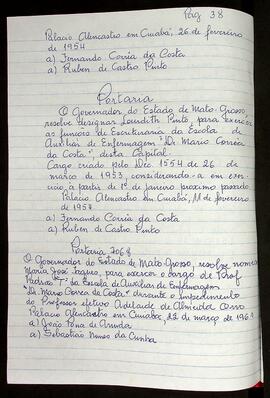 Pág 38
Palácio Alencastro em Cuiabá, 26 de fevereiro
de 1954
a) Fernando Corrêa da Costa
a) Ruben de Castro Pinto
Portaria
O Governador do Estado de Mato-Grosso,
resolve designar Pinto, para exercer
as funções de Escrituraria da Escola de
Auxiliar de Enfermagem "Dr. Mario Corrêa
da Costa", desta Capital.
Cargo criado pelo Dec. 1554 de 26 de
março de 1953, considerando-a em exer-
cício, a partir de 1º de janeiro proximo passado
Palacio Alencastro em Cuiabá, 11 de fevereiro
de 1954
a) Fernando Corrêa da Costa
a) Ruben de Castro Pinto
Portaria 2068
O Governador do Estado de Mato-Grosso, resolve nomear
Maria José para exercer o cargo de Prof
Padrão "T" da Escola de Auxiliar de Enfermagem
"Dr. Mario Corrêa da Costa" durante o impedimento
do Professor efetivo Adelaide de Almeida
Palácio Alencastro em Cuiabá, 22 de março de
a) João Ponce de Arruda
a) Sebastião Nunes da Cunha